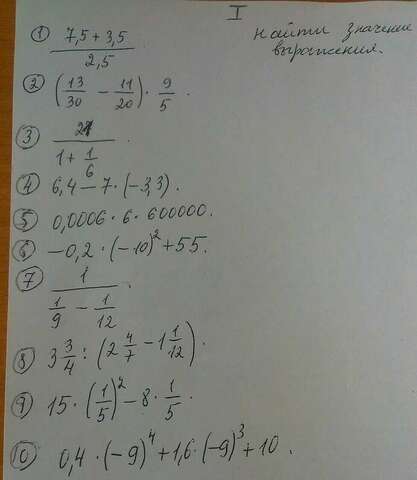 I
Найти значение
выражения.
① (7,5 + 3,5)/2,5
② (13/30 − 11/20) · 9/5.
③ 21/(1 + 1/6).
④ 6,4 − 7 · (−3,3).
⑤ 0,0006 · 6 · 600000.
⑥ −0,2 · (−10)² + 55.
⑦ 1/(1/9 − 1/12).
⑧ 3 3/4 : (2 4/7 − 1 1/12).
⑨ 15 · (1/5)² − 8 · 1/5.
⑩ 0,4 · (−9)⁴ + 1,6 · (−9)³ + 10.